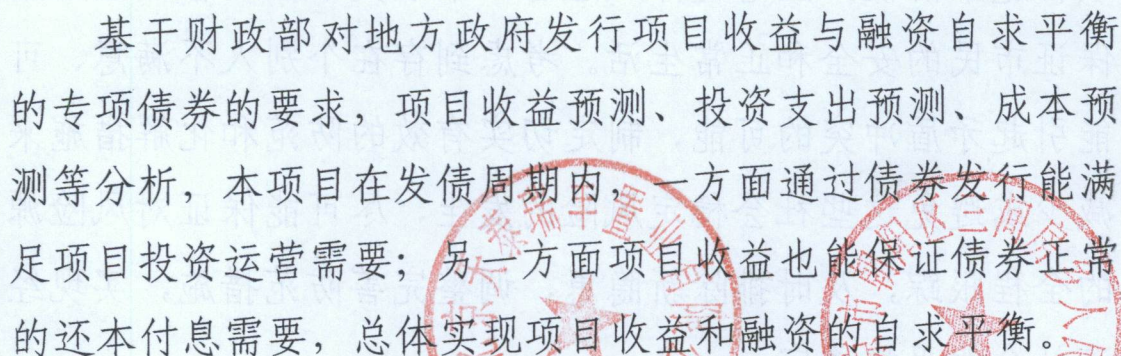 基于财政部对地方政府发行项目收益与融资自求平衡
的专项债券的要求，项目收益预测、投资支出预测、成本预
测等分析，本项目在发债周期内，一方面通过债券发行能满
足项目投资运营需要；另一方面项目收益也能保证债券正常
的还本付息需要，总体实现项目收益和融资的自求平衡。